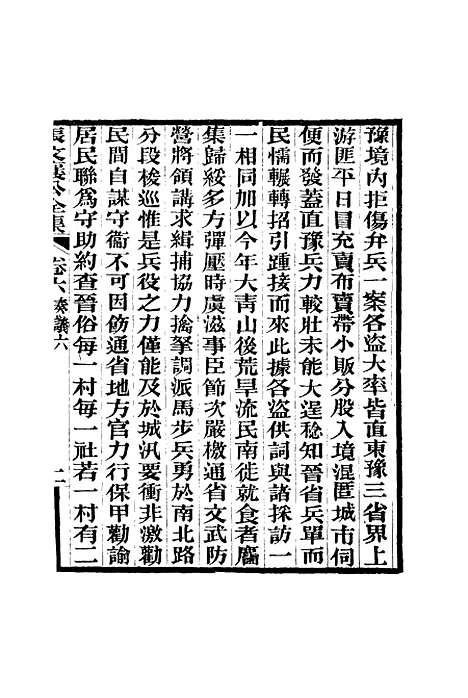 豫境內拒傷弁兵一案各盜大率皆直東豫三省界上
游匪平日冒充賣布賣帶小販分股入境混匿城市伺
便而發蓋直豫兵力較壯未能大逞稔知晉省兵單而
民懦輾轉招引踵接而來此據各盜供詞與諸採訪一
一相同加以今年大靑山後荒旱流民南徙就食者麕
集歸綏多方彈壓時虞滋事臣節次嚴檄通省文武防
營將領講求緝捕協力擒拏調派馬步兵勇於南北路
分段梭巡惟是兵役之力僅能及於城汛要衝非激勸
民間自謀守衞不可因飭通省地方官力行保甲勸諭
居民聯爲守助約查晉俗每一村每一社若一村有二
張文襄公全集 卷六 奏議六 二